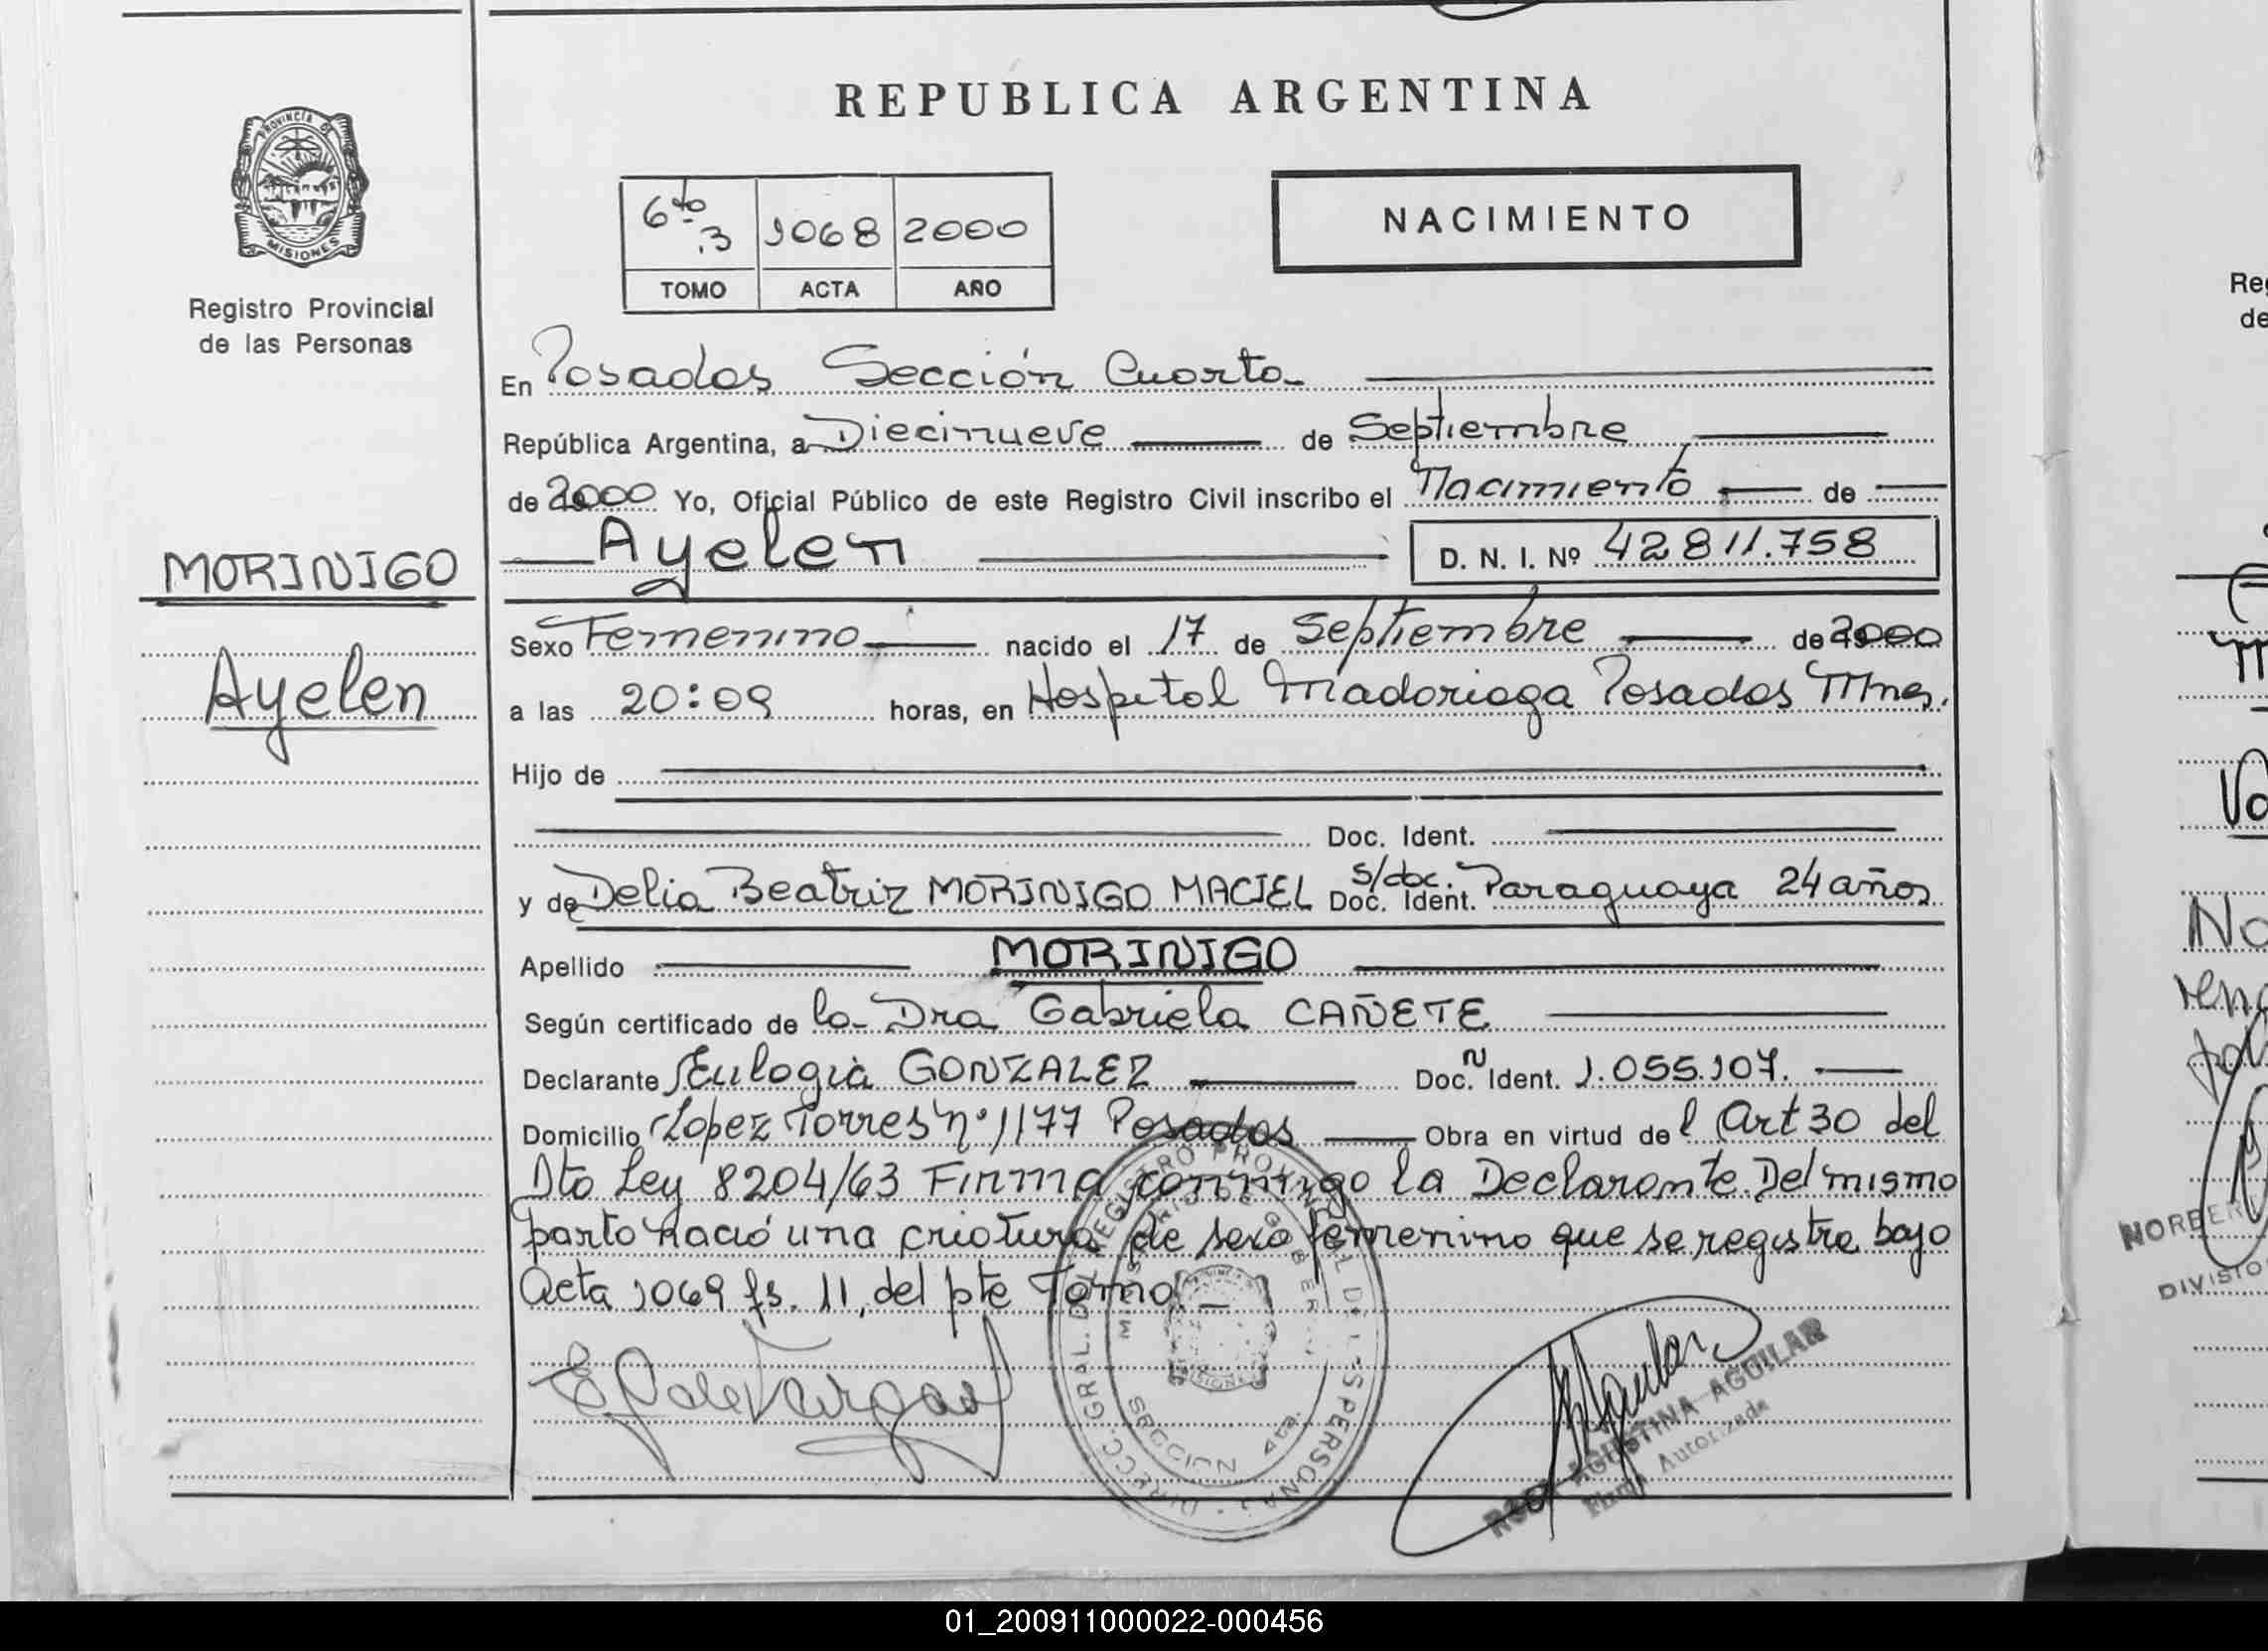 REPUBLICA ARGENTINA
PROVINCIA DE
MISIONES
Registro Provincial
de las Personas
6to 13 1068 2000
TOMO ACTA AÑO
NACIMIENTO
En Posadas Sección Cuarta
República Argentina, a Diecinueve de Septiembre
de 2000 Yo, Oficial Público de este Registro Civil inscribo el Nacimiento de
Ayelen D. N. I. Nº 42811.758
MORINIGO
Ayelen
Sexo Femenino nacido el 17 de Septiembre de 2000
a las 20:09 horas, en Hospital Madoriaga Posadas Mnes.
Hijo de
Doc. Ident.
y de Delia Beatriz MORINIGO MACIEL Doc. Ident. s/doc. Paraguaya 24 años
Apellido MORINIGO
Según certificado de la Dra Gabriela CAÑETE
Declarante Eulogia GONZALEZ Doc. Ident. N 1.055.107.
Domicilio Lopez Torres nº 1177 Posadas Obra en virtud del Art 30 del
Dto Ley 8204/63 Firma conmigo la Declarante. Del mismo
parto nació una criatura de sexo femenino que se registra bajo
Acta 1069 fs. 11, del pte Tomo.
E G de Vargas
DIRECC. GRAL. DEL REGISTRO PROVINCIAL DE LAS PERSONAS
MINISTERIO DE GOBIERNO
MISIONES
SECCION 4ta.
ROSA AGUSTINA AGUILAR
Firma Autorizada
Reg
de
Va
No
NORBER
DIVISIO
01_200911000022-000456